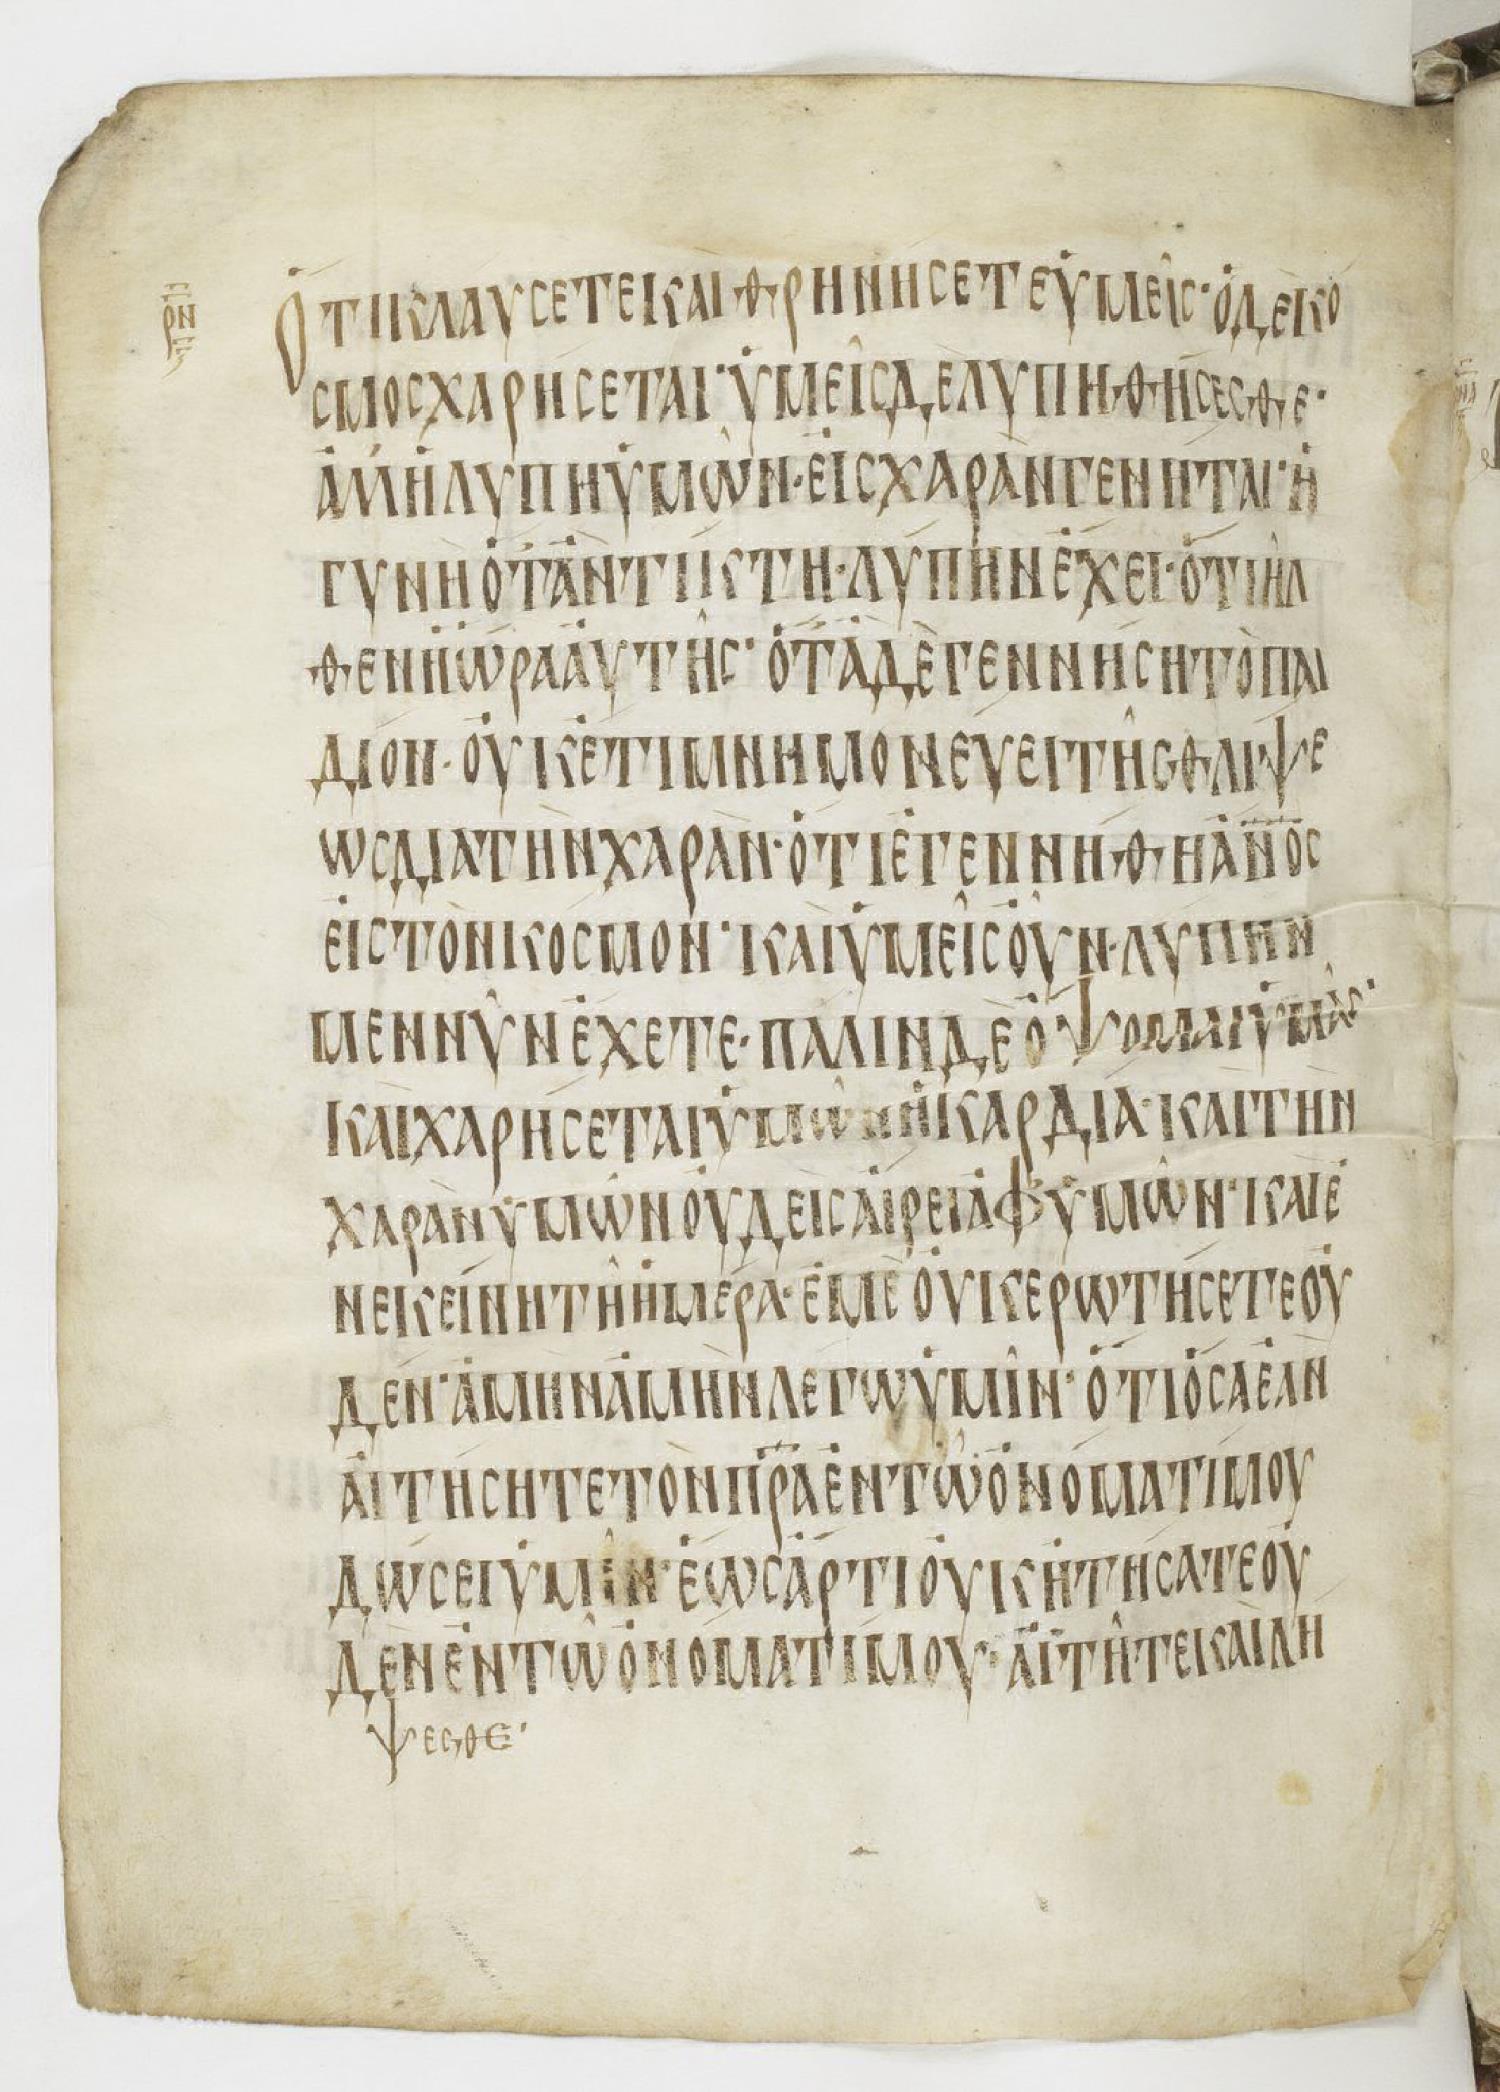 ρν
ὉΤΙΚΛΑΥΣΕΤΕΚΑΙΘΡΗΝΗΣΕΤΕΥΜΕΙΣ·ὉΔΕΚΟ
ΣΜΟΣΧΑΡΗΣΕΤΑΙ·ΥΜΕΙΣΔΕΛΥΠΗΘΗΣΕΣΘΕ·
ΑΜΗΛΥΠΗΥΜΩΝ·ΕΙΣΧΑΡΑΝΓΕΝΗΤΑΙ·Η
ΓΥΝΗΟΤΑΝΤΙΚΤΗ·ΛΥΠΗΝΕΧΕΙ·ΟΤΙΗΛ
ΘΕΝΗΩΡΑΑΥΤΗΣ·ΟΤΑΔΕΓΕΝΝΗΣΗΤΟΠΑΙ
ΔΙΟΝ·ΟΥΚΕΤΙΜΝΗΜΟΝΕΥΕΙΤΗΣΘΛΙΨΕ
ΩΣΔΙΑΤΗΝΧΑΡΑΝ·ΟΤΙΕΓΕΝΝΗΘΗΑΝΟΣ
ΕΙΣΤΟΝΚΟΣΜΟΝ·ΚΑΙΥΜΕΙΣΟΥΝ·ΛΥΠΗΝ
ΜΕΝΝΥΝΕΧΕΤΕ·ΠΑΛΙΝΔΕΟΨΟΜΑΙΥΜΑΣ·
ΚΑΙΧΑΡΗΣΕΤΑΙΥΜΩΝΗΚΑΡΔΙΑ·ΚΑΙΤΗΝ
ΧΑΡΑΝΥΜΩΝΟΥΔΕΙΣΑΙΡΕΙΑΦΥΜΩΝ·ΚΑΙΕ
ΝΕΚΕΙΝΗΤΗΗΜΕΡΑ·ΕΜΕΟΥΚΕΡΩΤΗΣΕΤΕΟΥ
ΔΕΝ·ΑΜΗΝΑΜΗΝΛΕΓΩΥΜΙΝ·ΟΤΙΟΣΑΕΑΝ
ΑΙΤΗΣΗΤΕΤΟΝΠΡΑΕΝΤΩΟΝΟΜΑΤΙΜΟΥ
ΔΩΣΕΙΥΜΙΝ·ΕΩΣΑΡΤΙΟΥΚΗΤΗΣΑΤΕΟΥ
ΔΕΝΕΝΤΩΟΝΟΜΑΤΙΜΟΥ·ΑΙΤΗΤΕΚΑΙΛΗ
ΨΕΣΘΕ·